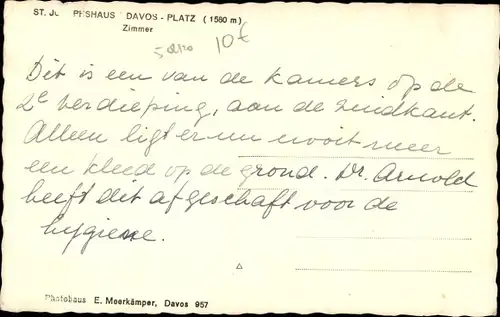 ST. JO PHSHAUS DAVOS - PLATZ (1580 m)
Zimmer
10€
Dit is een van de kamers op de
2e verdieping, aan de zuidkant.
Alleen ligt er nu nooit meer
een kleed op de grond. Dr. Arnold
heeft dit afgeschaft voor de
hygiene.
Photohaus E. Meerkämper, Davos 957